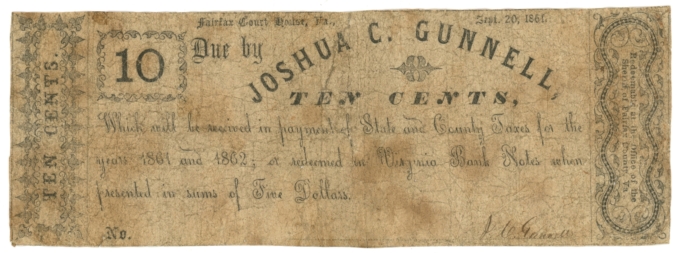 Fairfax Court House, Va., Sept. 20, 1861.
TEN CENTS.
10
Due by
JOSHUA C. GUNNELL,
TEN CENTS,
Which will be received in payment of State and County Taxes for the
years 1861 and 1862; or redeemed in Virginia Bank Notes when
presented in sums of Five Dollars.
No.
J. C. Gunnell
Redeemable at the Office of the
Sheriff of Fairfax County, Va.